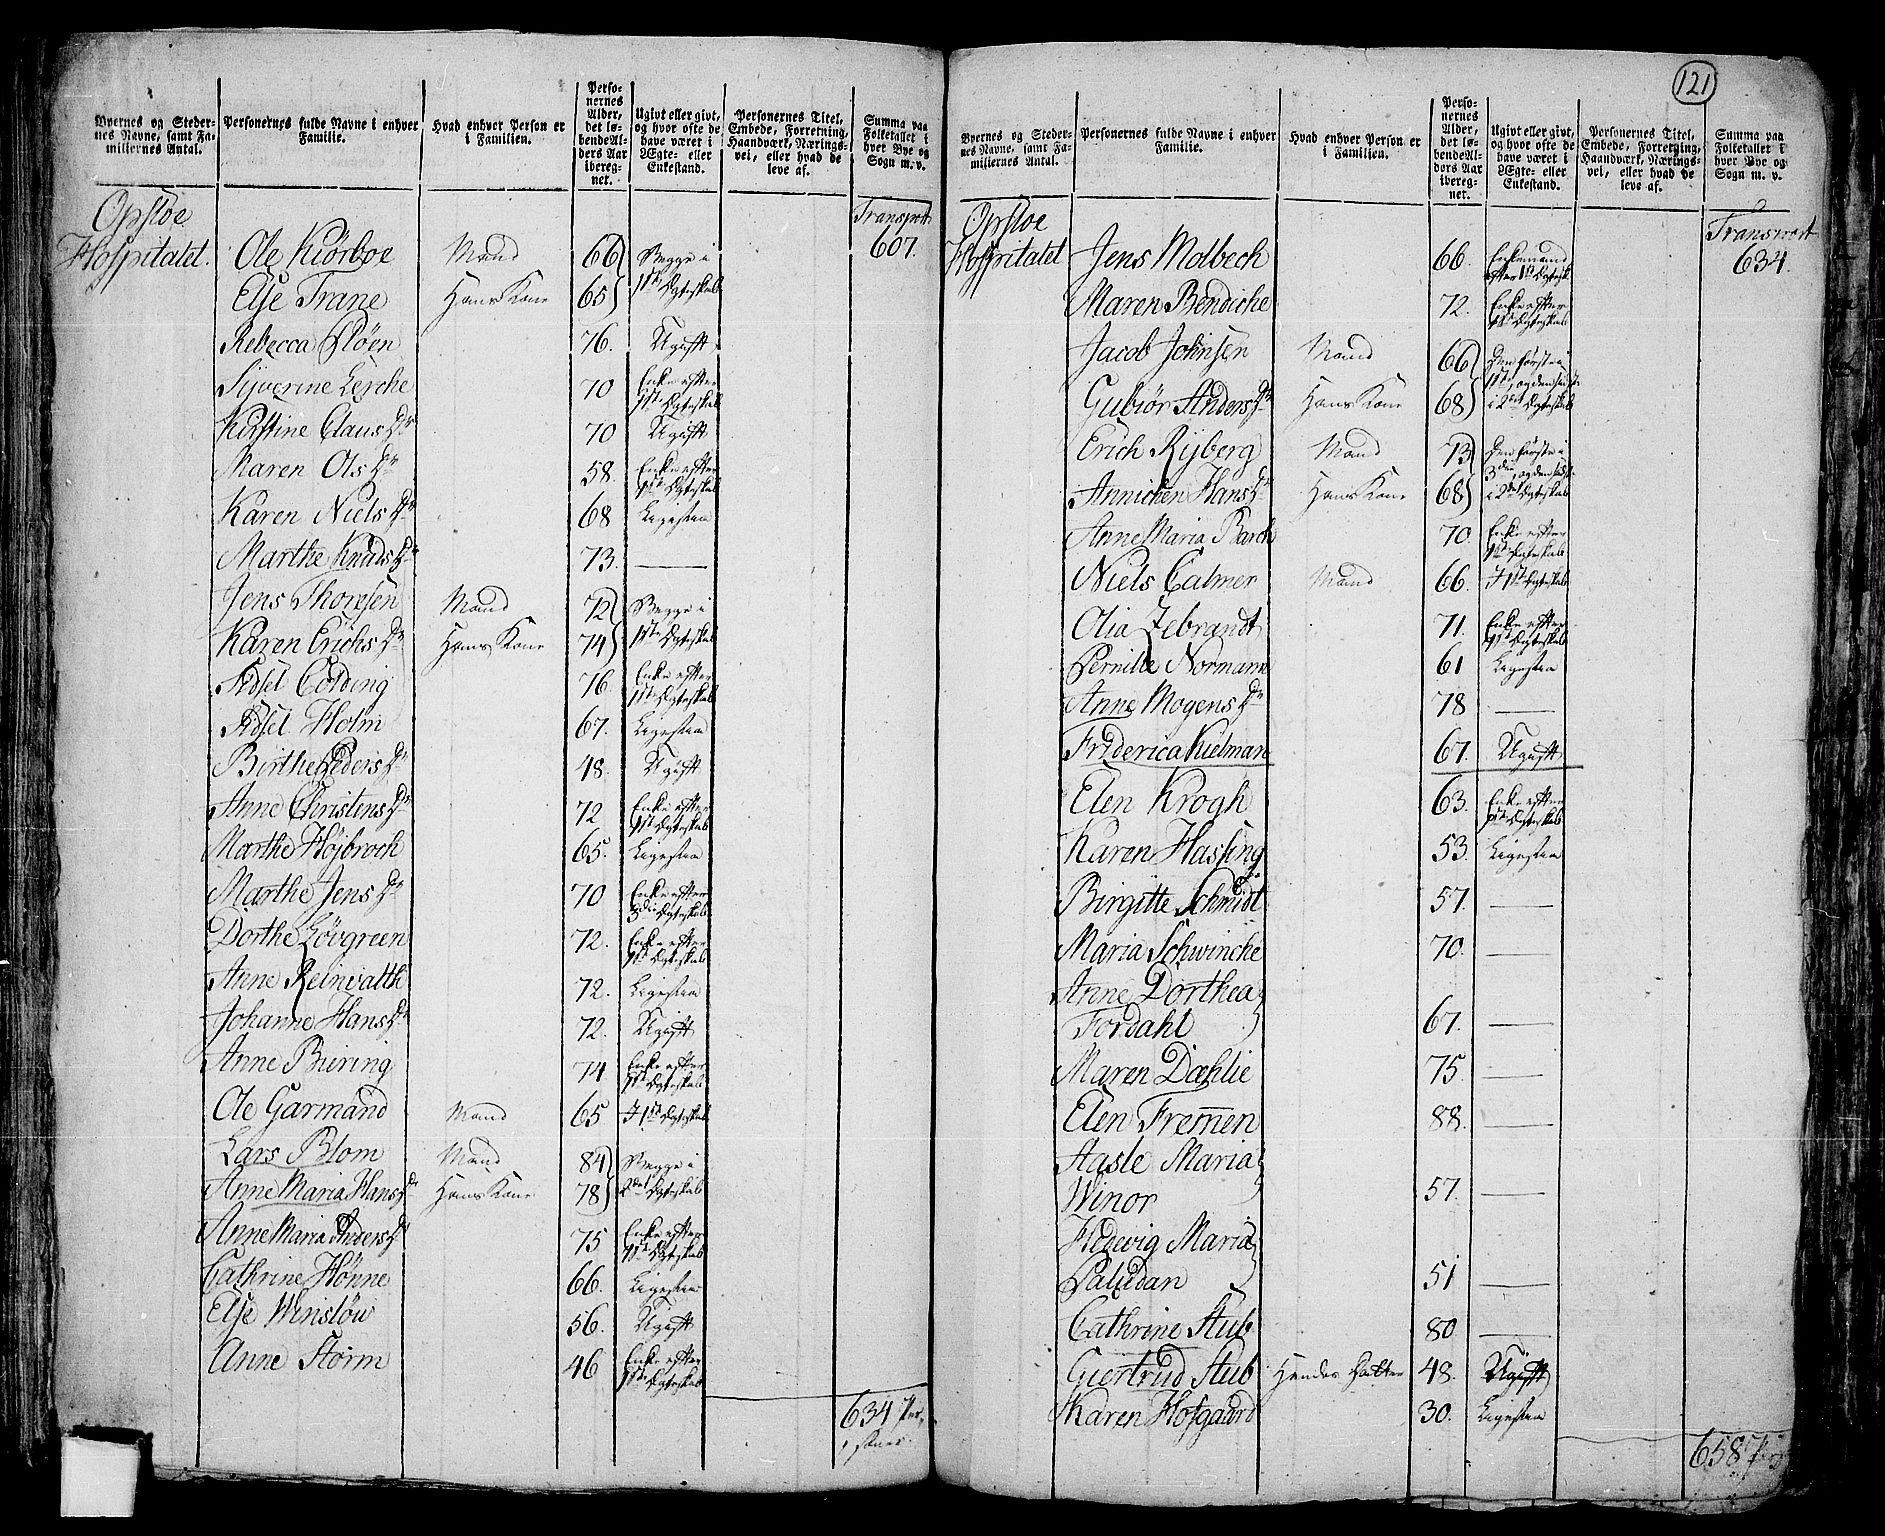 Byernes og Steder-
nes Navne, samt Fa-
miliernes Antal.
Personernes fulde Navne i enhver
Familie.
Hvad enhver Person er
i Familien.
Perso-
nernes
Alder,
det lø-
bende Al-
ders Aar
ibereg-
net.
Ugivt eller givt,
og hvor ofte de
have været i
Ægte- eller
Enkestand.
Personernes Titel,
Embede, Forretning,
Haandværk, Nærings-
vei, eller hvad de
leve af.
Summa paa
Folketallet i
hver Bye og
Sogn m. v.
Opsloe Transport
Hospitalet. Ole Kiørboe Mand 66 Begge i 607.
Else Trane Hans Kone 65 1ste Ægteskab
Rebecca Fløen 76. Ugift
Syverine Lerche 70 Enke efter 1ste Ægteskab
Kirstine Clausdr 70 Ugift
Maren Olsdr 58. Enke efter 1ste Ægteskab
Karen Nielsdr 68 Ligesaa
Marthe Knudsdr 73. —
Jens Thomsen Mand 72 Begge i
Karen Erichsdr Hans Kone 74 1ste Ægteskab
Sidsel Colding 76. Enke efter 1ste Ægteskab
Sidsel Holm 67. Ligesaa
Birthe Pedersdr 48. Ugift
Anne Christensdr 72 Enke efter 1ste Ægteskab
Marthe Højbroch 65. Ligesaa
Marthe Jensdr 70 Enke efter 3die Ægteskab
Dorthe Løvgreen 72. Enke efter 1ste Ægteskab
Anne Reinvalth 72. Ligesaa
Johanne Hansdr 72. Ugift
Anne Biering 74 Enke efter 1ste Ægteskab
Ole Garmand Mand 65 I 1ste Ægteskab
Lars Blom Mand 84 Begge i
Anne Maria Hansdr Hans Kone 78 2det Ægteskab
Anne Maria Andersdr 75 Enke efter 1ste Ægteskab
Cathrine Hønne 66. Ligesaa
Else Winsløw 56. Ugift
Anne Storm 46 Enke efter 1ste Ægteskab
634
121
Byernes og Steder-
nes Navne, samt Fa-
miliernes Antal.
Personernes fulde Navne i enhver
Familie.
Hvad enhver Person er
i Familien.
Perso-
nernes
Alder,
det lø-
bende Al-
ders Aar
ibereg-
net.
Ugivt eller givt,
og hvor ofte de
have været i
Ægte- eller
Enkestand.
Personernes Titel,
Embede, Forretning,
Haandværk, Nærings-
vei, eller hvad de
leve af.
Summa paa
Folketallet i
hver Bye og
Sogn m. v.
Opsloe Transport
Hospitalet Jens Molbech 66. Enkemand efter 1ste Ægtesk. 634.
Maren Bendiche 72. Enke efter 1ste Ægteskab
Jacob Johnsen Mand 66 Den første i
Gubiør Andersdr Hans Kone 68 1ste, og den sidste i 2det Ægteskab
Erich Ryberg Mand 73 Den første i
Annichen Hansdr Hans Kone 68 3die, og den sidste i 2det Ægteskab
Anne Maria Barch 70 Enke efter 1ste Ægteskab
Niels Calmer Mand 66. I 1ste Ægteskab
Olia Zebrandt 71. Enke efter 1ste Ægteskab
Pernille Normann 61 Ligesaa
Anne Mogensdr 78 —
Friderica Kielman 67. Ugift
Elen Krogh 63. Enke efter 1ste Ægteskab
Karen Hasling 53. Ligesaa
Birgitte Schmidt 57. —
Maria Schwinche 70. —
Anne Dorthea
Fordahl 67. —
Maren Dæhlie 75. —
Elen Fremen 88. —
Aasle Maria
Winor 57. —
Hedevig Maria
Paludan 51 —
Cathrine Stub 80 —
Giertrud Stub Hendes Datter 48. Ugift
Karen Hofgaard 30. Ligesaa
658